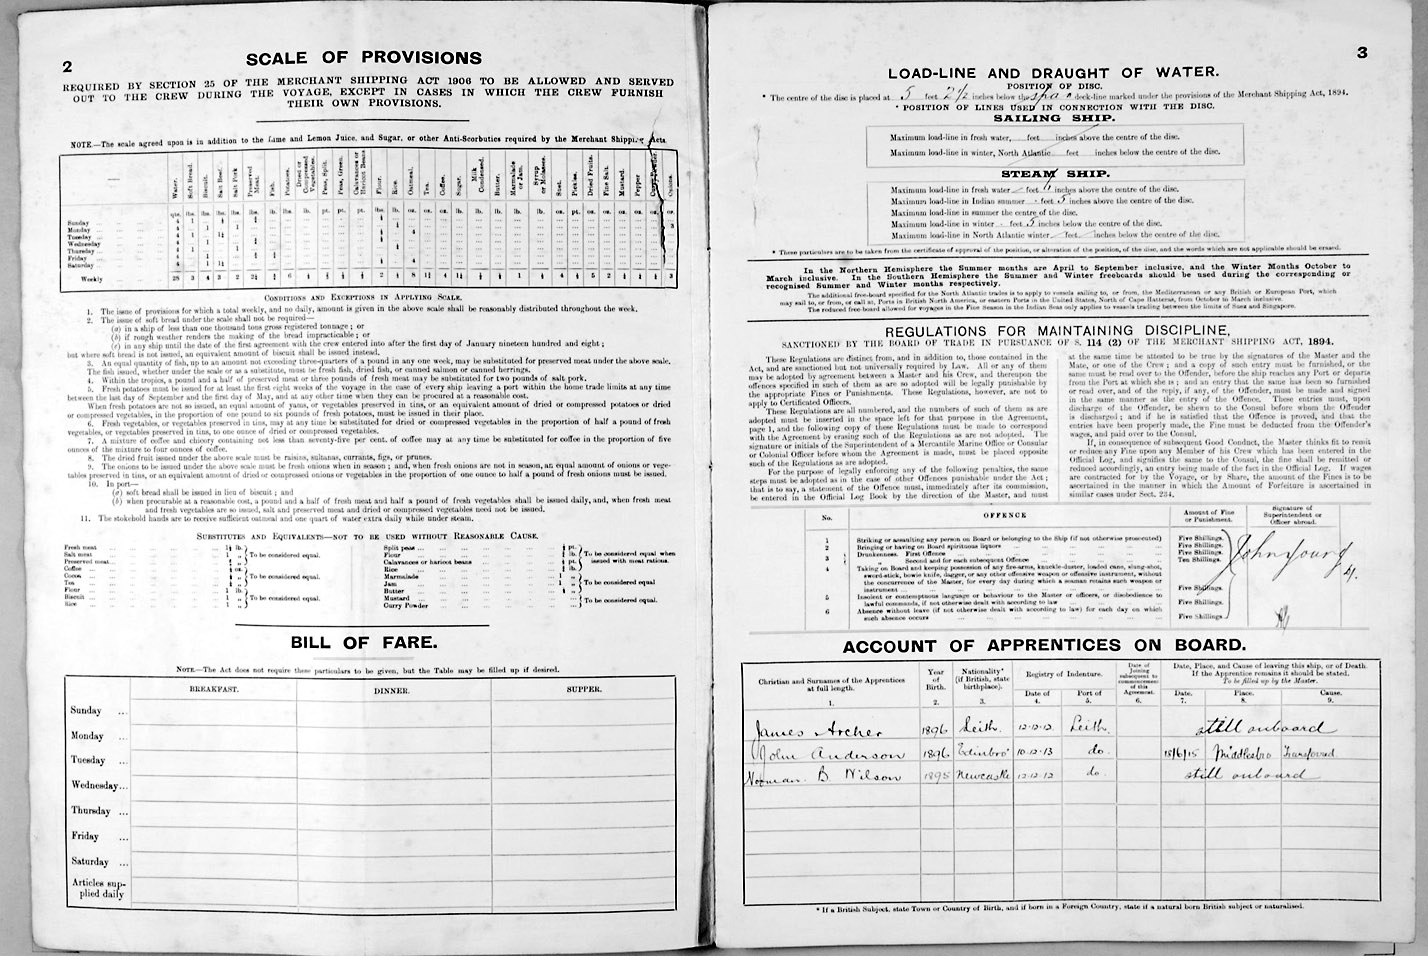 2
SCALE OF PROVISIONS
REQUIRED BY SECTION 25 OF THE MERCHANT SHIPPING ACT 1906 TO BE ALLOWED AND SERVED
OUT TO THE CREW DURING THE VOYAGE, EXCEPT IN CASES IN WHICH THE CREW FURNISH
THEIR OWN PROVISIONS.
NOTE.—The scale agreed upon is in addition to the Lime and Lemon Juice, and Sugar, or other Anti-Scorbutics required by the Merchant Shipping Acts.
Water. Soft Bread. Biscuit. Salt Beef. Salt Pork Preserved Meat. Fish. Potatoes. Dried or Compressed Vegetables. Peas, Split. Peas, Green. Calavances or Haricot Beans Flour. Rice. Oatmeal. Tea. Coffee. Sugar. Milk Condensed. Butter. Marmalade or Jam. Syrup or Molasses. Suet. Pickles. Dried Fruits. Fine Salt. Mustard. Pepper Curry Powder. Onions.
Sunday
Monday
Tuesday
Wednesday
Thursday
Friday
Saturday
Weekly
CONDITIONS AND EXCEPTIONS IN APPLYING SCALE.
1. The issue of provisions for which a total weekly, and no daily, amount is given in the above scale shall be reasonably distributed throughout the week.
2. The issue of soft bread under the scale shall not be required—
(a) in a ship of less than one thousand tons gross registered tonnage; or
(b) if rough weather renders the making of the bread impracticable; or
(c) in any ship until the date of the first agreement with the crew entered into after the first day of January nineteen hundred and eight;
but where soft bread is not issued, an equivalent amount of biscuit shall be issued instead.
3. An equal quantity of fish, up to an amount not exceeding three-quarters of a pound in any one week, may be substituted for preserved meat under the above scale.
The fish issued, whether under the scale or as a substitute, must be fresh fish, dried fish, or canned salmon or canned herrings.
4. Within the tropics, a pound and a half of preserved meat or three pounds of fresh meat may be substituted for two pounds of salt pork.
5. Fresh potatoes must be issued for at least the first eight weeks of the voyage in the case of every ship leaving a port within the home trade limits at any time
between the last day of September and the first day of May, and at any other time when they can be procured at a reasonable cost.
When fresh potatoes are not so issued, an equal amount of yams, or vegetables preserved in tins, or an equivalent amount of dried or compressed potatoes or dried
or compressed vegetables, in the proportion of one pound to six pounds of fresh potatoes, must be issued in their place.
6. Fresh vegetables, or vegetables preserved in tins, may at any time be substituted for dried or compressed vegetables in the proportion of half a pound of fresh
vegetables, or vegetables preserved in tins, to one ounce of dried or compressed vegetables.
7. A mixture of coffee and chicory containing not less than seventy-five per cent. of coffee may at any time be substituted for coffee in the proportion of five
ounces of the mixture to four ounces of coffee.
8. The dried fruit issued under the above scale must be raisins, sultanas, currants, figs, or prunes.
9. The onions to be issued under the above scale must be fresh onions when in season; and, when fresh onions are not in season, an equal amount of onions or vege-
tables preserved in tins, or an equivalent amount of dried or compressed onions or vegetables in the proportion of one ounce to half a pound of fresh onions must be issued.
10. In port—
(a) soft bread shall be issued in lieu of biscuit; and
(b) when procurable at a reasonable cost, a pound and a half of fresh meat and half a pound of fresh vegetables shall be issued daily, and, when fresh meat
and fresh vegetables are so issued, salt and preserved meat and dried or compressed vegetables need not be issued.
11. The stokehold hands are to receive sufficient oatmeal and one quart of water extra daily while under steam.
SUBSTITUTES AND EQUIVALENTS—NOT TO BE USED WITHOUT REASONABLE CAUSE.
Fresh meat
Salt meat
Preserved meat
To be considered equal.
Coffee
Cocoa
Tea
To be considered equal.
Flour
Biscuit
Rice
To be considered equal.
Split peas
Flour
Calavances or haricot beans
Rice
To be considered equal when issued with meat rations.
Marmalade
Jam
Butter
To be considered equal
Mustard
Curry Powder
To be considered equal.
BILL OF FARE.
NOTE.—The Act does not require these particulars to be given, but the Table may be filled up if desired.
BREAKFAST. DINNER. SUPPER.
Sunday ...
Monday ...
Tuesday ...
Wednesday...
Thursday ...
Friday ...
Saturday ...
Articles sup-
plied daily
3
LOAD-LINE AND DRAUGHT OF WATER.
POSITION OF DISC.
* The centre of the disc is placed at 5 feet 2 1/2 inches below the spar deck-line marked under the provisions of the Merchant Shipping Act, 1894.
* POSITION OF LINES USED IN CONNECTION WITH THE DISC.
SAILING SHIP.
Maximum load-line in fresh water, feet inches above the centre of the disc.
Maximum load-line in winter, North Atlantic feet inches below the centre of the disc.
STEAM SHIP.
Maximum load-line in fresh water feet inches above the centre of the disc.
Maximum load-line in Indian summer - feet 5 inches above the centre of the disc.
Maximum load-line in summer the centre of the disc.
Maximum load-line in winter - feet 5 inches below the centre of the disc.
Maximum load-line in North Atlantic winter feet inches below the centre of the disc.
* These particulars are to be taken from the certificate of approval of the position, or alteration of the position, of the disc, and the words which are not applicable should be erased.
In the Northern Hemisphere the Summer months are April to September inclusive, and the Winter Months October to
March inclusive. In the Southern Hemisphere the Summer and Winter freeboards should be used during the corresponding or
recognised Summer and Winter months respectively.
The additional free-board specified for the North Atlantic trades is to apply to vessels sailing to, or from, the Mediterranean or any British or European Port, which
may sail to, or from, or call at, Ports in British North America, or eastern Ports in the United States, North of Cape Hatteras, from October to March inclusive.
The reduced free-board allowed for voyages in the Fine Season in the Indian Seas only applies to vessels trading between the limits of Suez and Singapore.
REGULATIONS FOR MAINTAINING DISCIPLINE,
SANCTIONED BY THE BOARD OF TRADE IN PURSUANCE OF S. 114 (2) OF THE MERCHANT SHIPPING ACT, 1894.
These Regulations are distinct from, and in addition to, those contained in the
Act, and are sanctioned but not universally required by Law. All or any of them
may be adopted by agreement between a Master and his Crew, and thereupon the
offences specified in such of them as are so adopted will be legally punishable by
the appropriate Fines or Punishments. These Regulations, however, are not to
apply to Certificated Officers.
These Regulations are all numbered, and the numbers of such of them as are
adopted must be inserted in the space left for that purpose in the Agreement,
page 1, and the following copy of these Regulations must be made to correspond
with the Agreement by erasing such of the Regulations as are not adopted. The
signature or initials of the Superintendent of a Mercantile Marine Office or Consular
or Colonial Officer before whom the Agreement is made, must be placed opposite
such of the Regulations as are adopted.
For the purpose of legally enforcing any of the following penalties, the same
steps must be adopted as in the case of other Offences punishable under the Act;
that is to say, a statement of the Offence must, immediately after its commission,
be entered in the Official Log Book by the direction of the Master, and must
at the same time be attested to be true by the signatures of the Master and the
Mate, or one of the Crew; and a copy of such entry must be furnished, or the
same must be read over to the Offender, before the ship reaches any Port or departs
from the Port at which she is; and an entry that the same has been so furnished
or read over, and of the reply, if any, of the Offender, must be made and signed
in the same manner as the entry of the Offence. These entries must, upon
discharge of the Offender, be shewn to the Consul before whom the Offender
is discharged; and if he is satisfied that the Offence is proved, and that the
entries have been properly made, the Fine must be deducted from the Offender's
wages, and paid over to the Consul.
If, in consequence of subsequent Good Conduct, the Master thinks fit to remit
or reduce any Fine upon any Member of his Crew which has been entered in the
Official Log, and signifies the same to the Consul, the fine shall be remitted or
reduced accordingly, an entry being made of the fact in the Official Log. If wages
are contracted for by the Voyage, or by Share, the amount of the Fines is to be
ascertained in the manner in which the Amount of Forfeiture is ascertained in
similar cases under Sect. 234.
No. OFFENCE Amount of Fine or Punishment. Signature of Superintendent or Officer abroad.
1 Striking or assaulting any person on Board or belonging to the Ship (if not otherwise prosecuted) Five Shillings.
2 Bringing or having on Board spirituous liquors Five Shillings.
3 Drunkenness. First Offence Five Shillings.
" Second and for each subsequent Offence Ten Shillings.
4 Taking on Board and keeping possession of any fire-arms, knuckle-duster, loaded cane, slung-shot,
sword-stick, bowie knife, dagger, or any other offensive weapon or offensive instrument, without
the concurrence of the Master, for every day during which a seaman retains such weapon or
instrument Five Shillings.
5 Insolent or contemptuous language or behaviour to the Master or officers, or disobedience to
lawful commands, if not otherwise dealt with according to law Five Shillings.
6 Absence without leave (if not otherwise dealt with according to law) for each day on which
such absence occurs Five Shillings.
John Young
ACCOUNT OF APPRENTICES ON BOARD.
Christian and Surnames of the Apprentices at full length. Year of Birth. Nationality* (if British, state birthplace). Registry of Indenture. Date of Port of Date of Joining subsequent to commencement of this Agreement. Date, Place, and Cause of leaving this ship, or of Death. If the Apprentice remains it should be stated. To be filled up by the Master. Date. Place. Cause.
1. 2. 3. 4. 5. 6. 7. 8. 9.
James Archer 1896 Leith 12-12-12 Leith still onboard
John Anderson 1896 Edinbro' 10-12-13 do. 15/6/15 Middlesbro Transferred
Norman B Wilson 1895 Newcastle 12-12-12 do. still onboard
* If a British Subject, state Town or Country of Birth, and if born in a Foreign Country, state if a natural born British subject or naturalised.